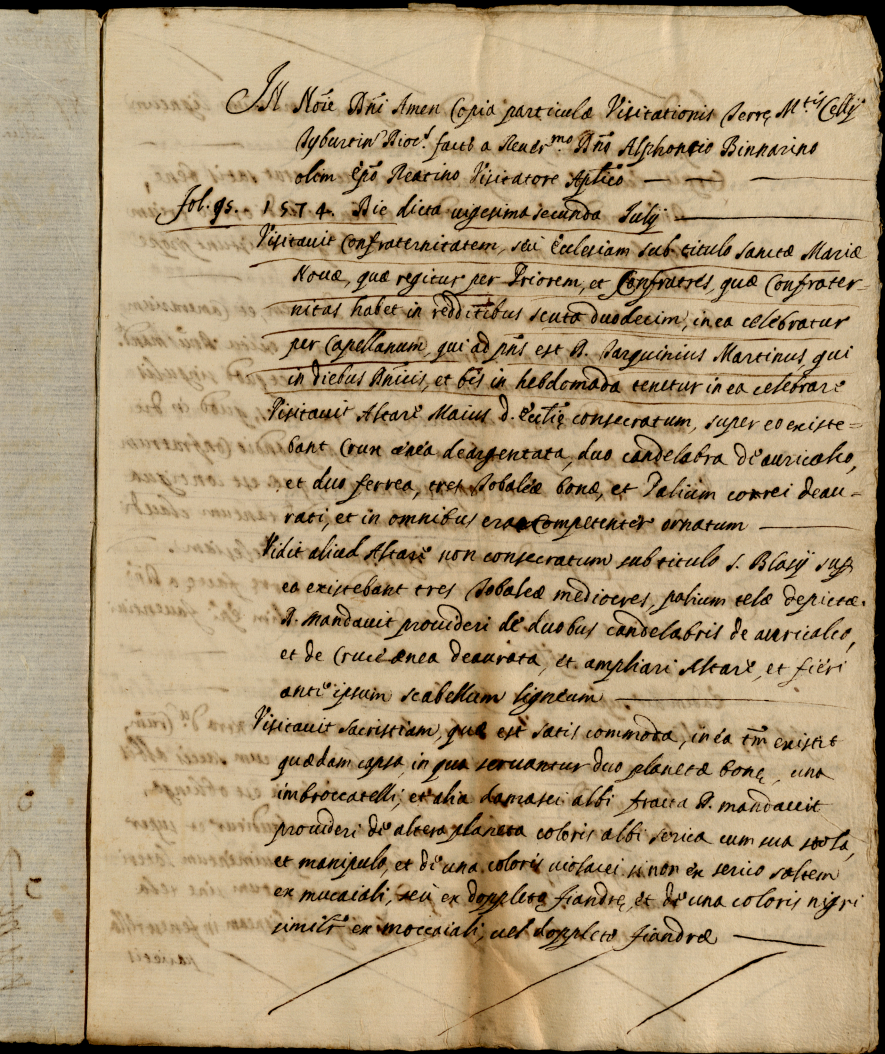 IN Noie Dni Amen Copia particulæ Visitationis Terrę M.tis Celij
Tyburtin Dioc.s factæ a Reuer.mo Dno Alphontio Binnarino
olim Epo Reatino Visitatore Aplico
Fol. 95. 1574. Die dicta uigesima secunda Julij
Visitauit Confraternitatem, seu Ecclesiam sub titulo sanctæ Mariæ
Nouæ, quæ regitur per Priorem, et Confratres, quæ Confrater-
nitas habet in redditibus scuta duodecim, in ea celebratur
per Capellanum, qui ad pns est D. Tarquinius Martinus qui
in diebus Dnicis, et bis in hebdomada tenetur in ea celebrare
Visitauit Altare Maius d. Ecclię consecratum, super eo existe=
bant Crux ænea deargentata, duo candelabra de auricalco,
et duo ferrea, tres Tobaleæ bonæ, et Palium correi deau-
rati, et in omnibus erat Competenter ornatum
Vidit aliud Altare non consecratum sub titulo S. Blasij sup
eo existebant tres Tobaleæ mediocres, palium telæ depictæ.
D. mandauit prouideri de duobus candelabris de auricalco,
et de Cruce ænea deaurata, et ampliari Altare, et fieri
ante ipsum scabellum ligneum
Visitauit Sacristiam, quæ est satis commoda, in ea tm existit
quædam capsa, in qua seruantur duo planetæ bonę, una
imbroccatelli, et alia damasci albi fracta D. mandauit
prouideri de altera planeta coloris albi serica cum sua stola,
et manipulo, et de una coloris uiolacei si non ex serico saltem
ex mucaiali, seu ex doppletto fiandrę, et de una coloris nigri
similr ex moccaiali, uel doppletto fiandræ